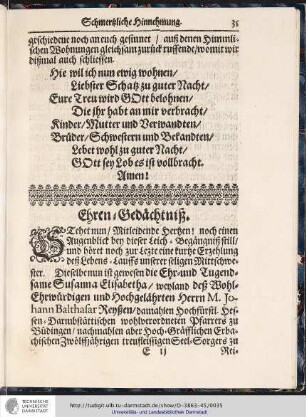 Schmertzliche Hinnehmung. 35
geschiedene noch an euch gesinnet / auß denen Himmli-
schen Wohnungen gleichsam zurück ruffende / womit wir
dißmal auch schliessen.
Hie wil ich nun ewig wohnen /
Liebster Schatz zu guter Nacht /
Eure Treu wird GOtt belohnen /
Die ihr habt an mir verbracht /
Kinder / Mutter und Verwandten /
Brüder / Schwestern und Bekandten /
Lebet wohl zu guter Nacht /
GOtt sey Lob es ist vollbracht.
Amen!
Ehren-Gedächtniß.
Stehet nun / Mitleidende Hertzen! noch einen
Augenblick bey dieser Leich-Begängniß still /
und hört noch zur Letzte eine kurtze Erzehlung
deß Lebens-Lauffs unserer seligen Mittschwe-
ster. Dieselbe nun ist gewesen die Ehr-und Tugend-
same Susanna Elisabetha / weyland deß Wohl-
Ehrwürdigen und Hochgelährten Herrn M. Jo-
hann Balthasar Reyßen / damahlen Hochfürstl. Hes-
sen-Darmbstättischen wohlverordneten Pfarrers zu
Büdingen / nachmahlen aber Hoch-Gräfflichen Erba-
chischen Zwölffjährigen treufleissigen Seel-Sorgers zu
E ij Rei-
TECHNISCHE
UNIVERSITÄT
DARMSTADT
http://tudigit.ulb.tu-darmstadt.de/show/O-3863-45/0035
Universitäts- und Landesbibliothek Darmstadt